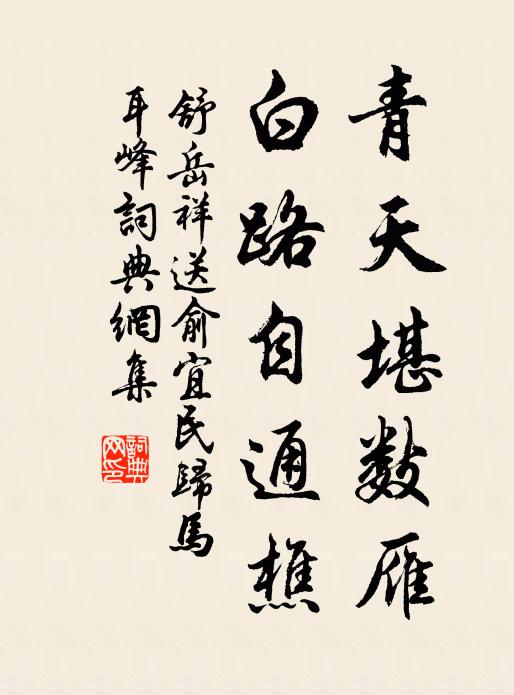 青天堪数雁
白路自通樵
舒岳祥送俞宜民歸馬
耳峰詞典網集
詞典网印